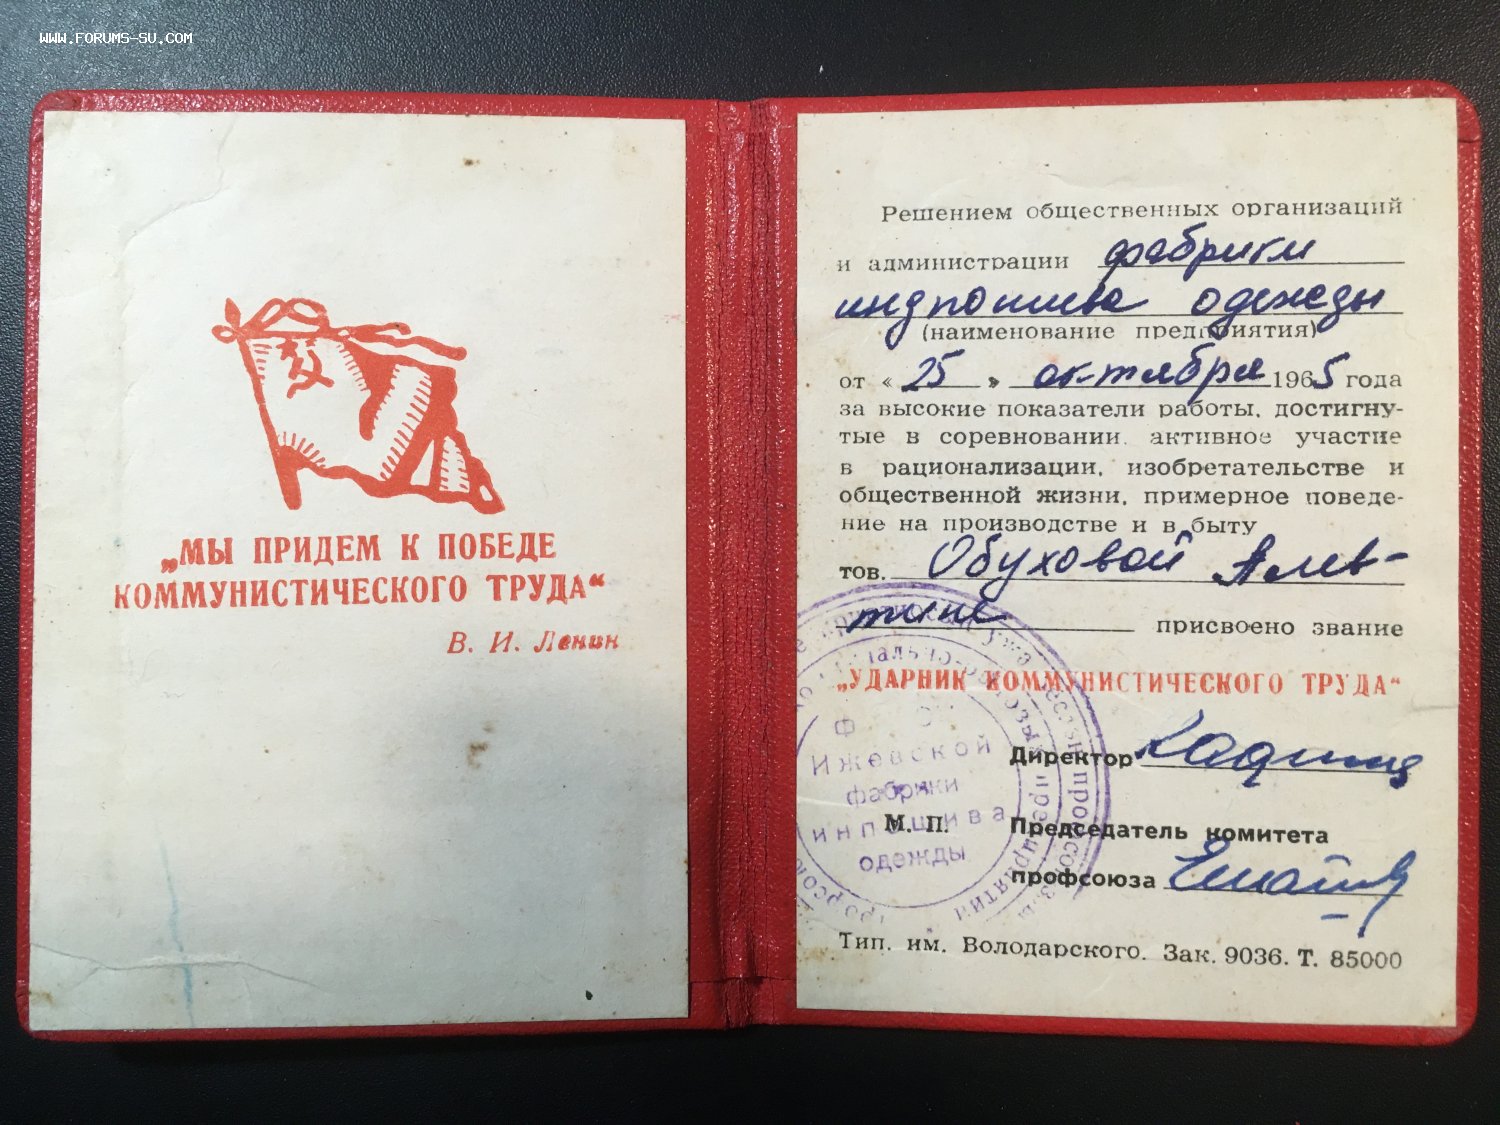 WWW.FORUMS-SU.COM
„МЫ ПРИДЕМ К ПОБЕДЕ
КОММУНИСТИЧЕСКОГО ТРУДА“
В. И. Ленин
Решением общественных организаций
и администрации фабрики
индпошива одежды
(наименование предприятия)
от « 25 » октября 1965 года
за высокие показатели работы, достигну-
тые в соревновании, активное участие
в рационализации, изобретательстве и
общественной жизни, примерное поведе-
ние на производстве и в быту
тов. Обуховой Алев-
тине присвоено звание
„УДАРНИК КОММУНИСТИЧЕСКОГО ТРУДА“
Директор
М. П. Председатель комитета
профсоюза
Тип. им. Володарского. Зак. 9036. Т. 85000
Ижевской
фабрики
инпошива
одежды